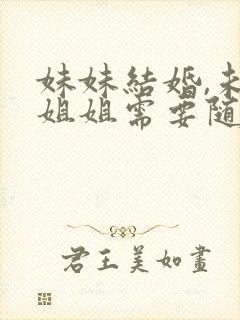 妹妹結婚,未
姐姐需要随
君王美如畫